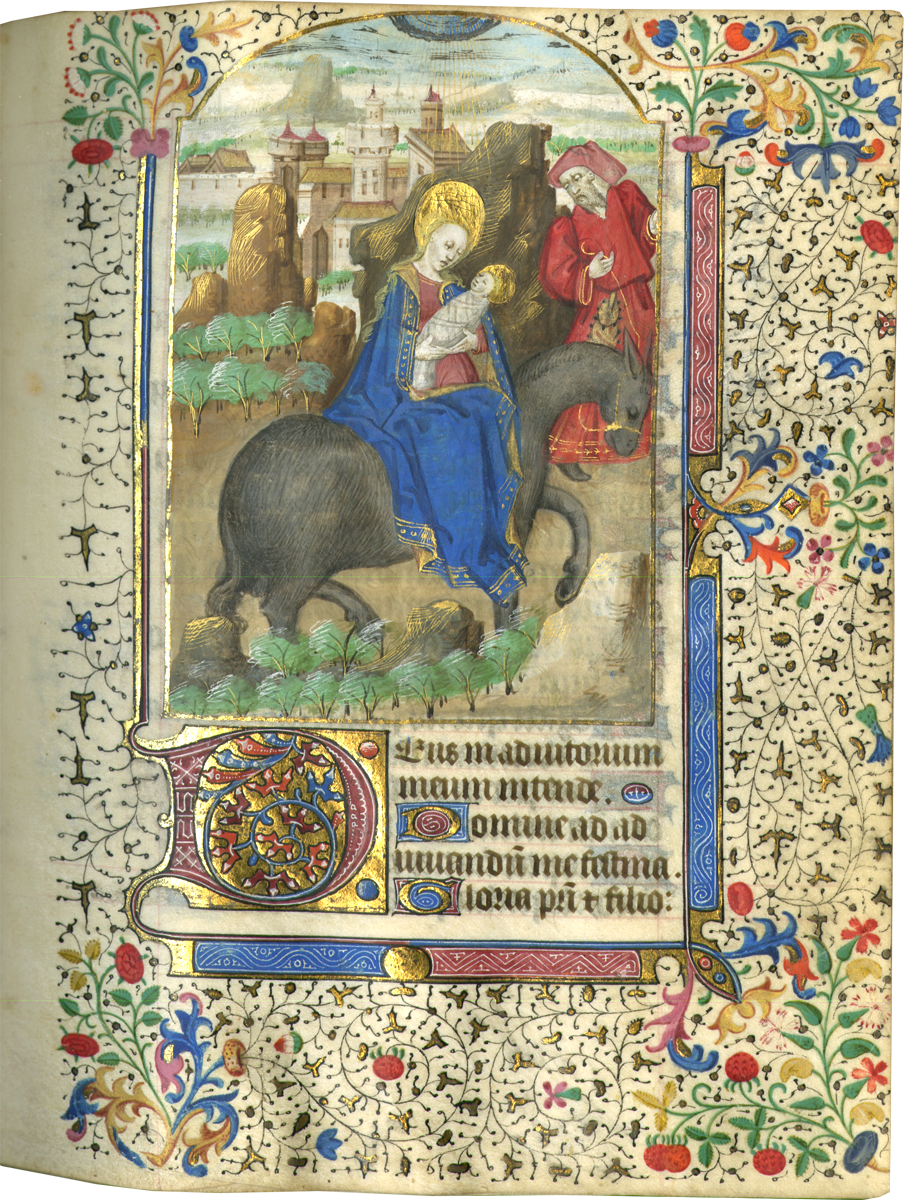 Deus in adiutorium
meum intende.
Domine ad ad
iuuandū me festina.
Gloria pr̄i ⁊ filio: